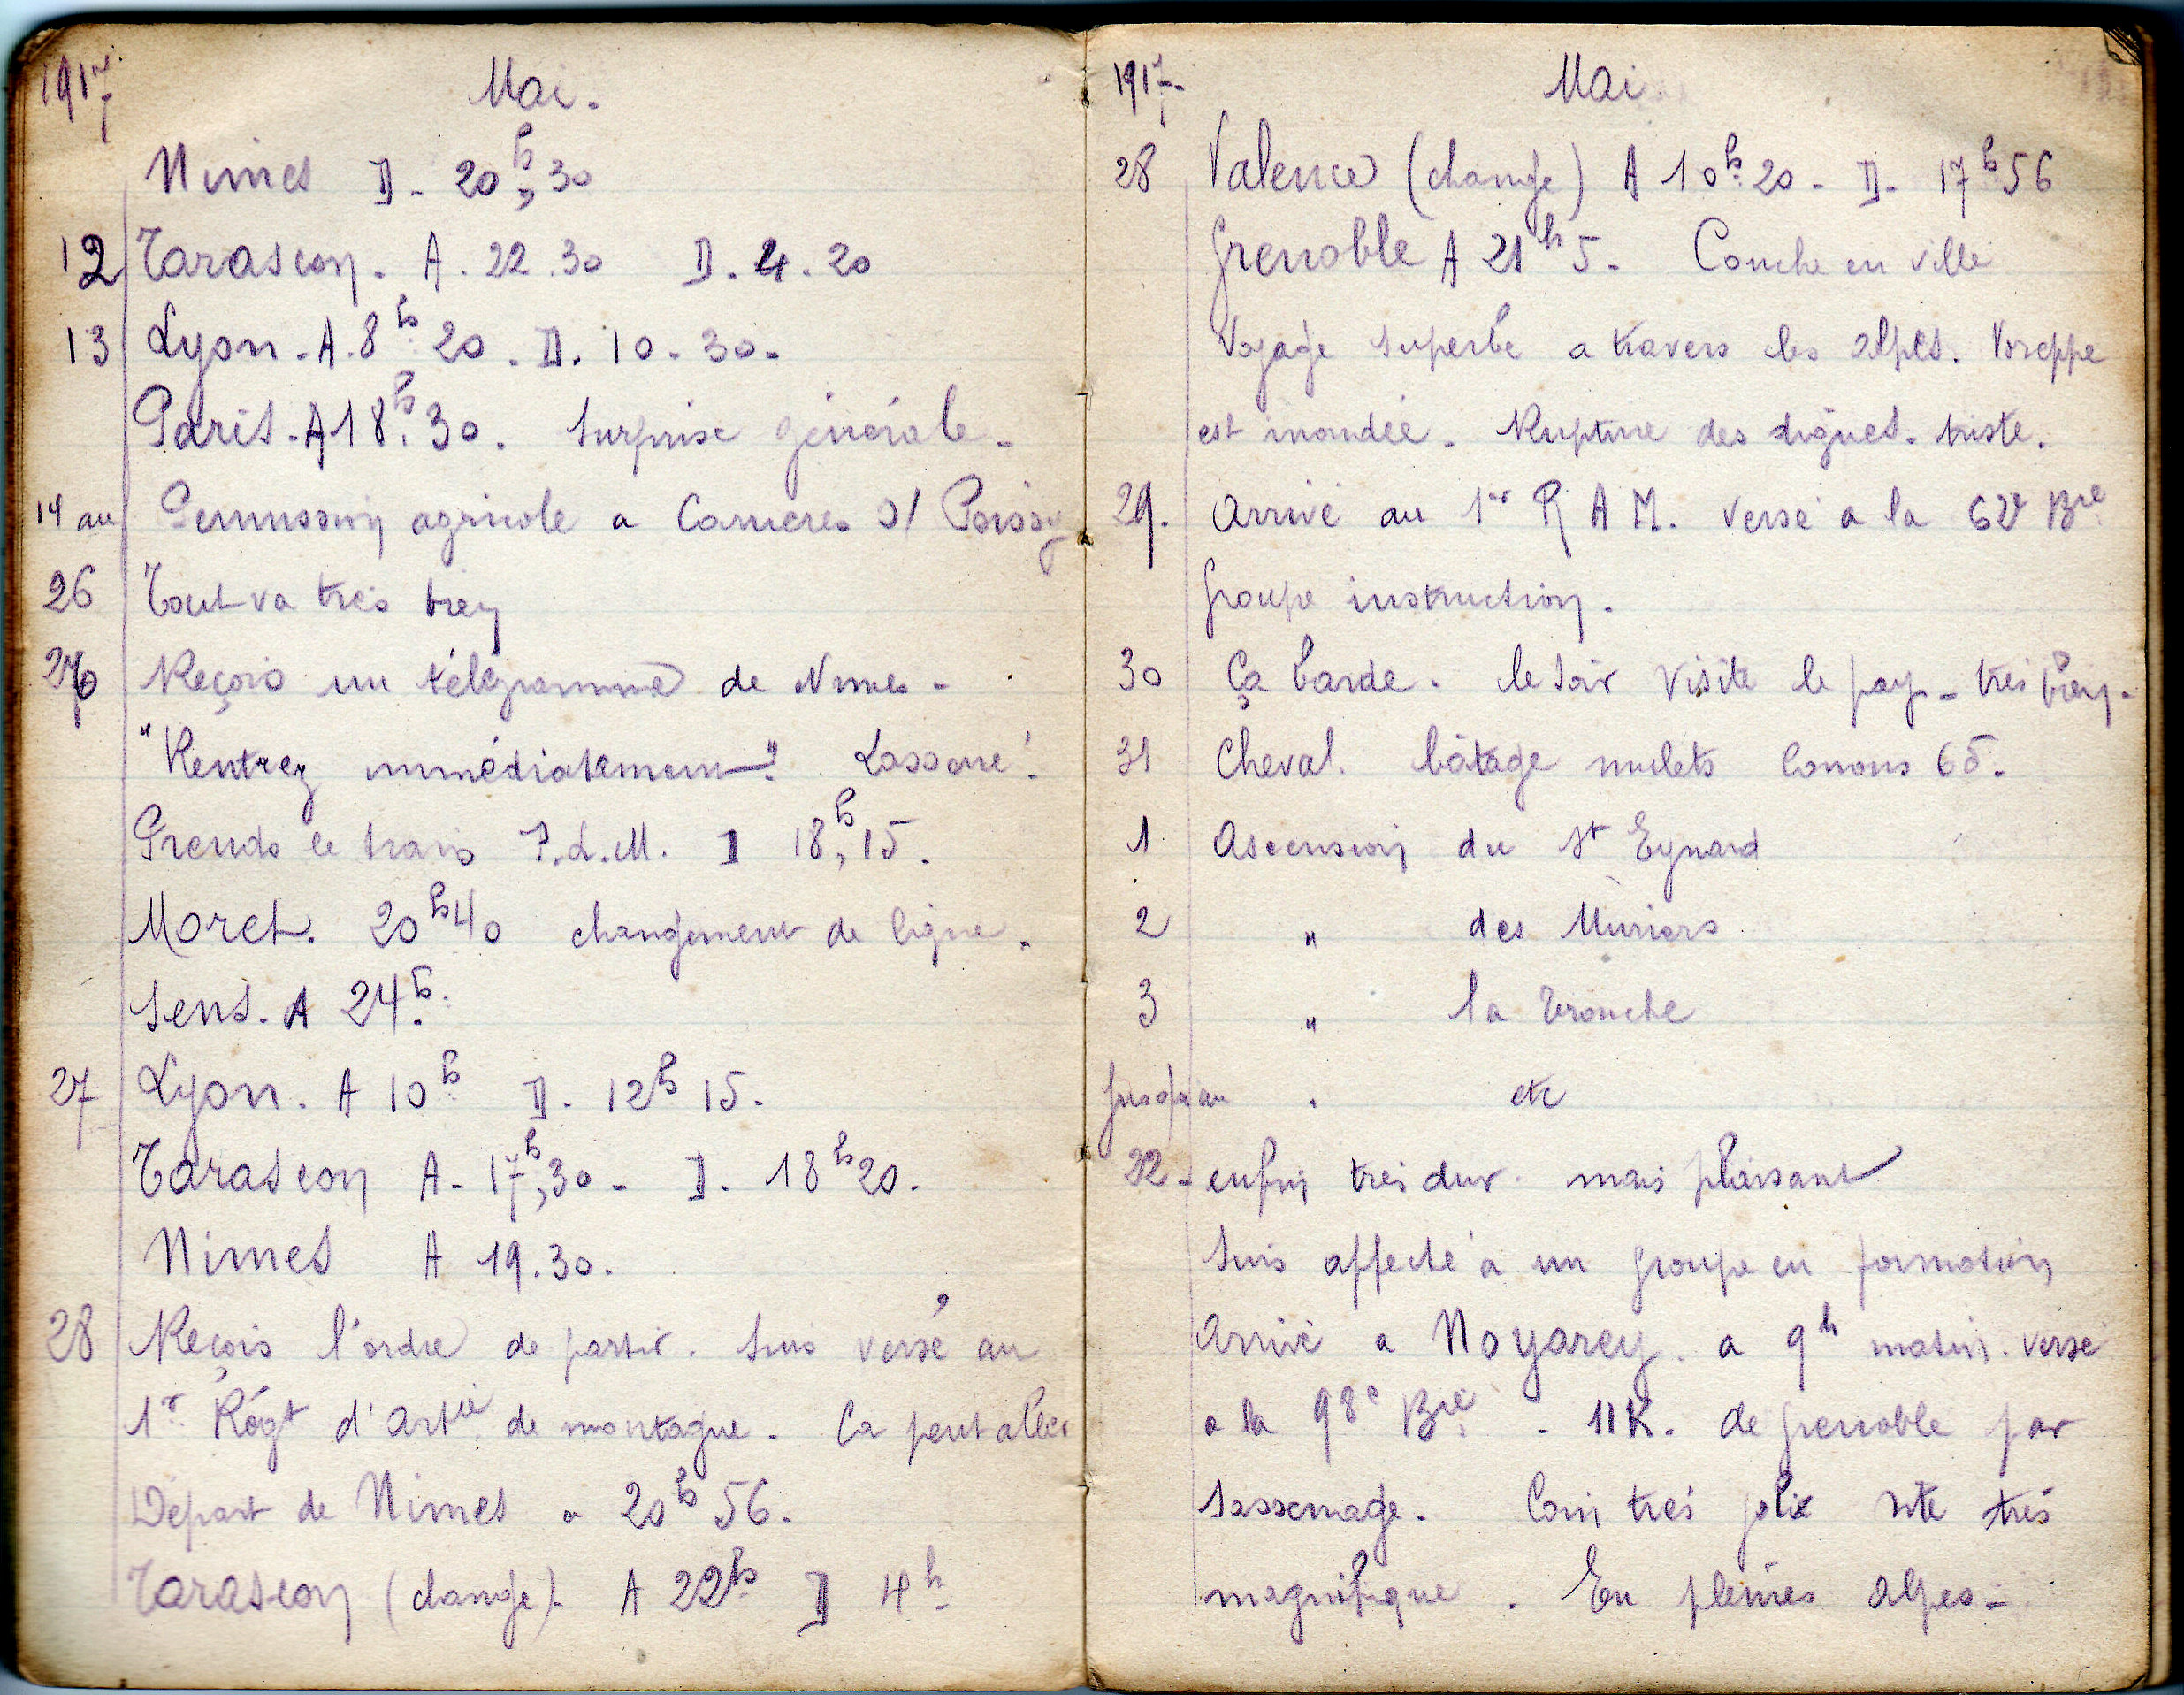 1917 Mai.
Nimes D - 20h,30
12 Tarascon. A. 22.30 D. 4.20
13 Lyon. A. 8h 20. D. 10.30.
Paris. A 18h.30. Surprise générale.
14 au Permission agricole a Carrieres s/ Poissy
26 Tout va très bien
26 Reçois un télégramme de Nimes -
"Rentrez immédiatement"
Prends le train P.L.M. D 18h,15.
Moret. 20h40 changement de ligne.
Sens. A 24h.
27 Lyon. A 10h D. 12h 15.
Tarascon A - 17h,30 - D. 18h20.
Nimes A 19.30.
28 Reçois l'ordre de partir. Suis versé au
1er Régt d'Artie de montagne. Ca peut aller
Départ de Nimes a 20h 56.
Tarascon (change). A 22h D 4h
1917. Mai
28 Valence (change) A 10h.20 - D. 17h56
Grenoble A 21h 5. Couche en ville
Voyage superbe a travers les alpes. Voreppe
est inondée. Rupture des digues. triste.
29. Arrivé au 1er R A M. versé a la 62e Bie
Groupe instruction.
30 Ça barde. le soir visite le pay - très bien.
31 Cheval. bâtage mulets Canons 65.
1 Ascension du St Eynard
2 " des
3 " la Tronche
Jusqu'au . etc
22 - enfin très dur. mais plaisant
Suis affecté a un groupe en formation
Arrivé a Noyarey. a 9h matin. versé
a la 98e Bie. - 11K. de grenoble par
Sassenage. Coin très joli très
magnifique. En pleines Alpes -